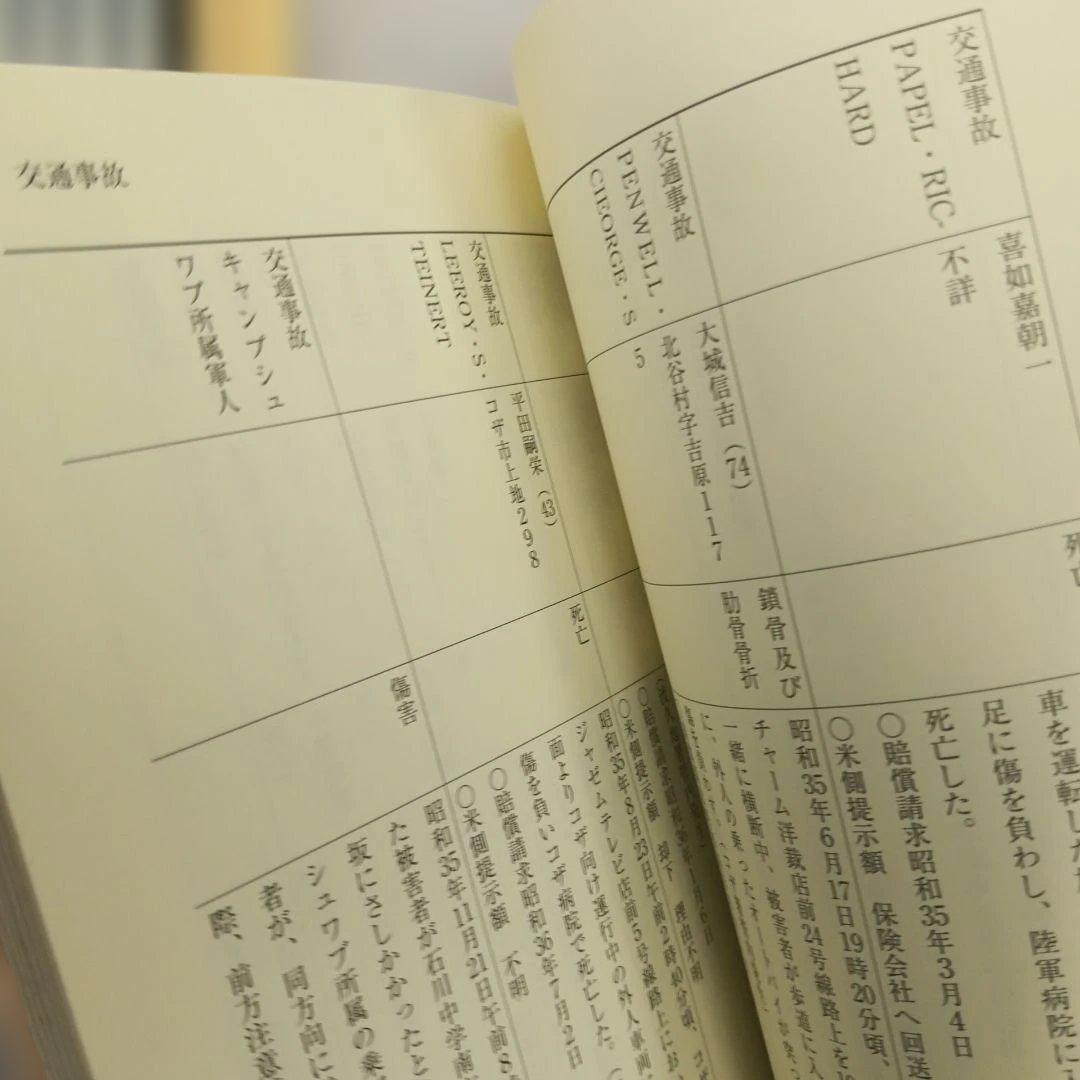 交通事故
PAPEL・RIC-
HARD
喜如嘉朝一
不詳
死亡
車を運転した
足に傷を負わし、陸軍病院に
死亡した。
〇賠償請求昭和35年3月4日
〇米側提示額 保険会社へ回送
交通事故
PENWELL・
CIEORGE・S
大城信吉(74)
北谷村字吉原117
5
鎖骨及び
肋骨骨折
昭和35年6月17日19時20分頃、
チャーム洋裁店前24号線路上を
一緒に横断中、被害者が歩道に入
に、外人の乗ったオートバイが
〇賠償請求昭和
〇米側提示額 却下 理由不明
交通事故
LEEROY・S・
TEINERT
平田嗣栄(43)
コザ市上地298
死亡
昭和35年8月23日午前2時40分頃、コ
ジャゼムテレビ店前5号線路上にお
面よりコザ向け運行中の外人車両
傷を負いコザ病院で死亡した。
〇賠償請求昭和36年7月2日
〇米側提示額 不明
交通事故
交通事故
キャンプシュ
ワブ所属軍人
傷害
昭和35年11月21日午前8
た被害者が石川中学南
坂にさしかかったと
シュワブ所属の乗
者が、同方向に
際、前方注意